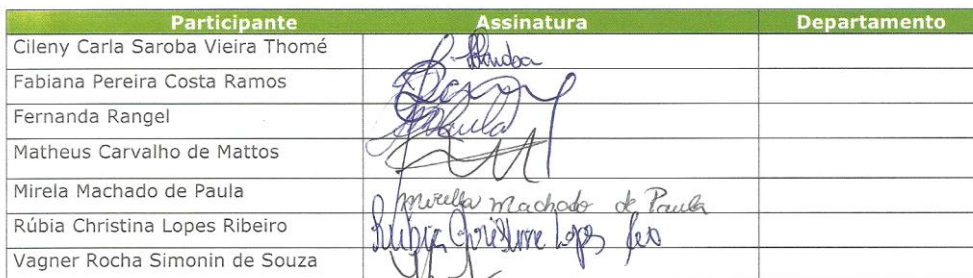 Participante Assinatura Departamento
Cileny Carla Saroba Vieira Thomé
Fabiana Pereira Costa Ramos
Fernanda Rangel
Matheus Carvalho de Mattos
Mirela Machado de Paula Mirella Machado de Paula
Rúbia Christina Lopes Ribeiro Rúbia Christine Lopes
Vagner Rocha Simonin de Souza